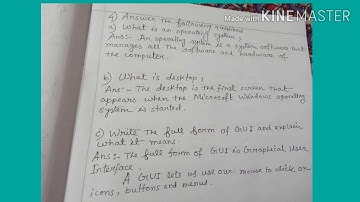 Made with KINEMASTER
4) Answer the following questions
a) What is an operating system?
Ans:- An operating system is a system software that
manages all the software and hardware of
the computer.
b) What is desktop?
Ans:- The desktop is the first screen that
appears when the Microsoft Windows operating
system is started.
c) Write the full form of GUI and explain
what it means.
Ans:- The full form of GUI is Graphical User
Interface.
A GUI lets us use our mouse to click on
icons, buttons and menus.